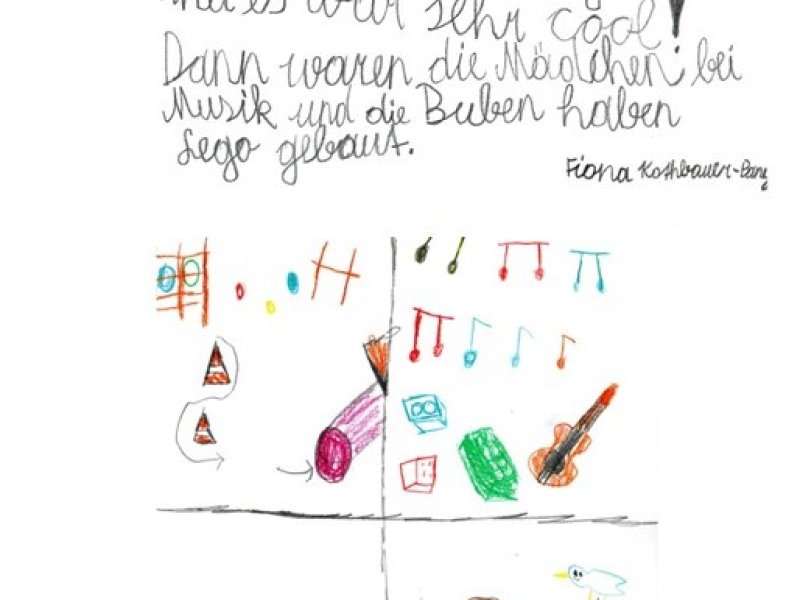 und es war sehr cool!
Dann waren die Mädchen bei
Musik und die Buben haben
Lego gebaut.
Fiona Kothbauer-